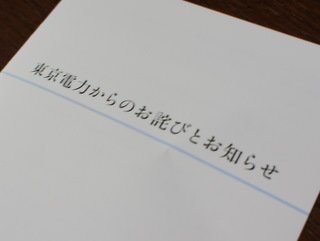 東京電力からのお詫びとお知らせ